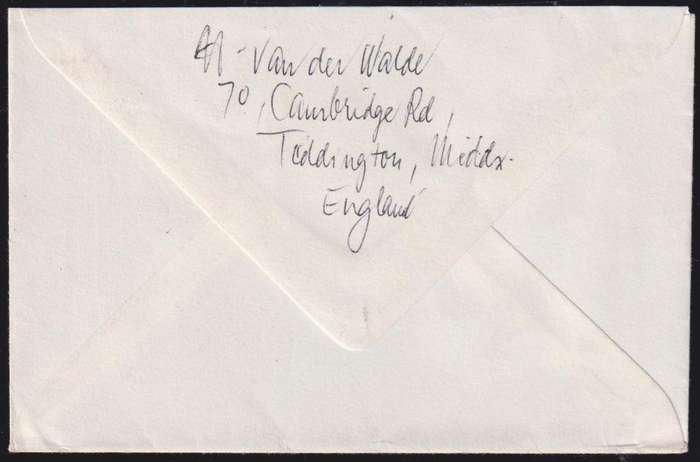 Van der Walde
70, Cambridge Rd,
Teddington, Middx.
England